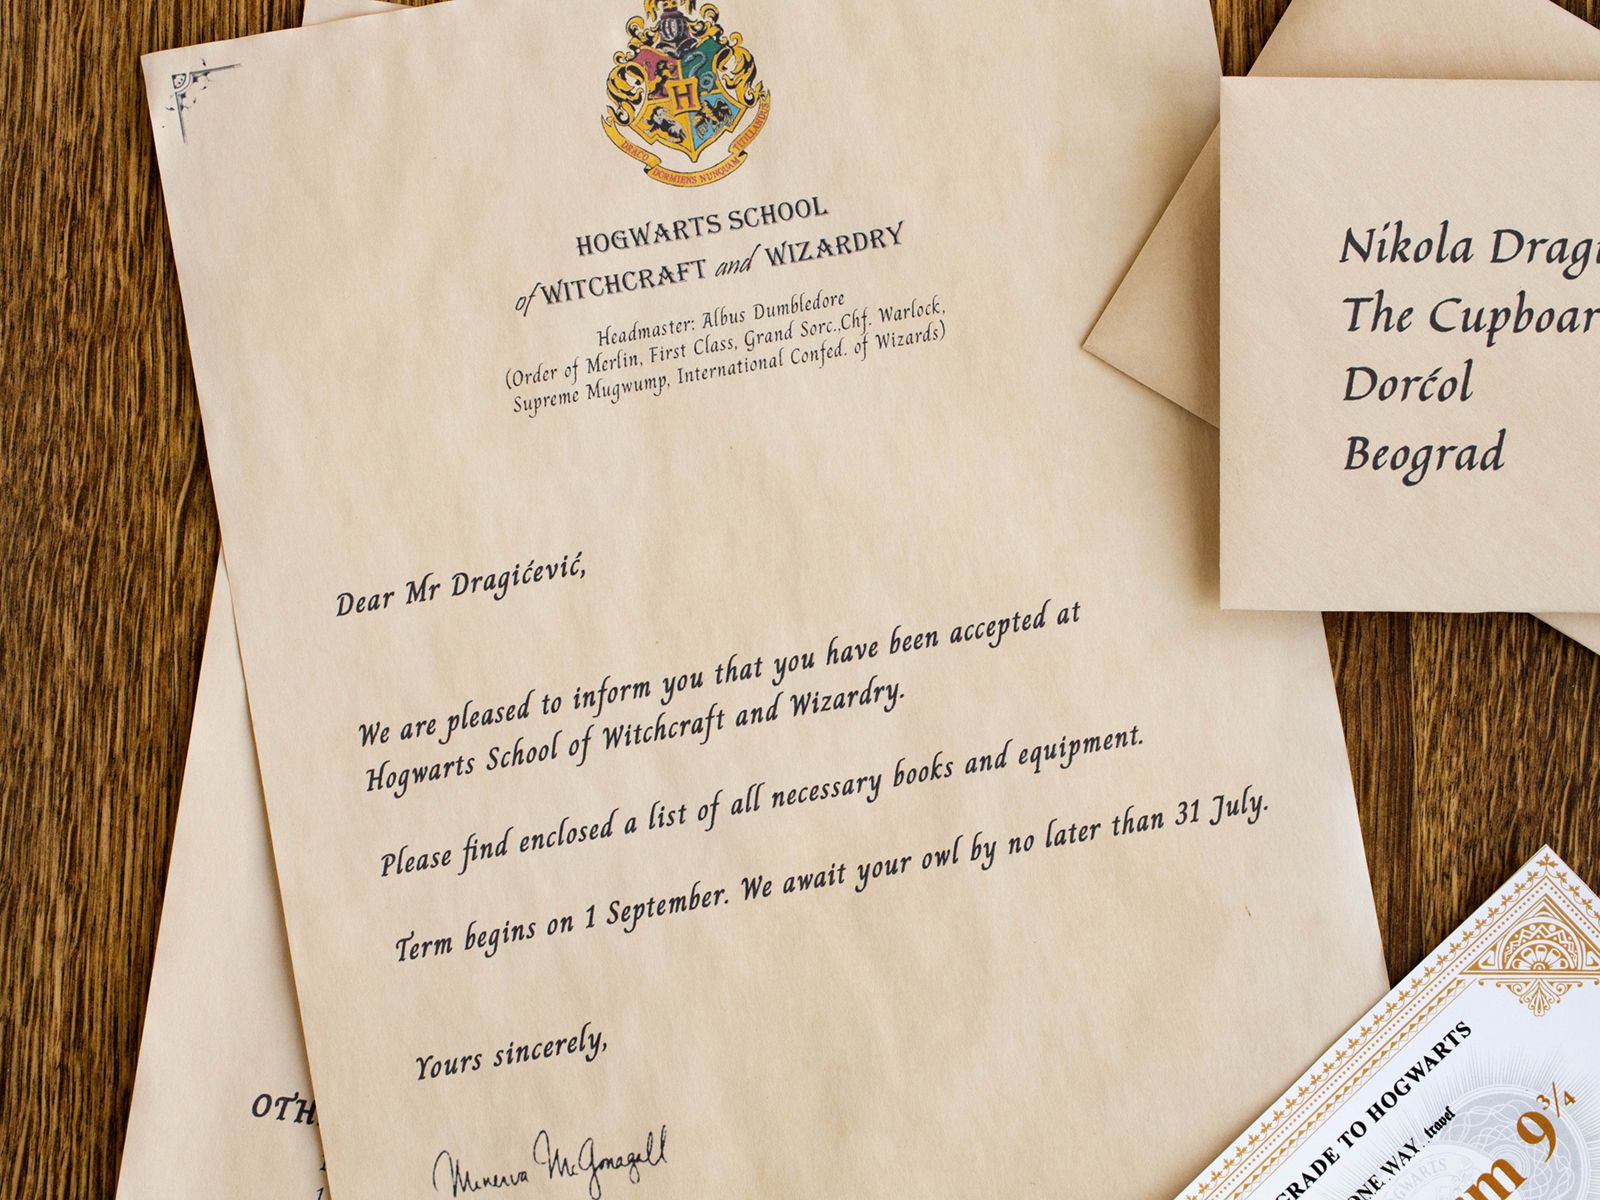 H
DRACO DORMIENS NUNQUAM TITILLANDUS
HOGWARTS SCHOOL
of WITCHCRAFT and WIZARDRY
Headmaster: Albus Dumbledore
(Order of Merlin, First Class, Grand Sorc.,Chf. Warlock,
Supreme Mugwump, International Confed. of Wizards)
Dear Mr Dragićević,
We are pleased to inform you that you have been accepted at
Hogwarts School of Witchcraft and Wizardry.
Please find enclosed a list of all necessary books and equipment.
Term begins on 1 September. We await your owl by no later than 31 July.
Yours sincerely,
Minerva McGonagall
OTH
Nikola Dragi
The Cupboar
Dorćol
Beograd
GRADE TO HOGWARTS
ONE WAY...travel
m 9 3/4